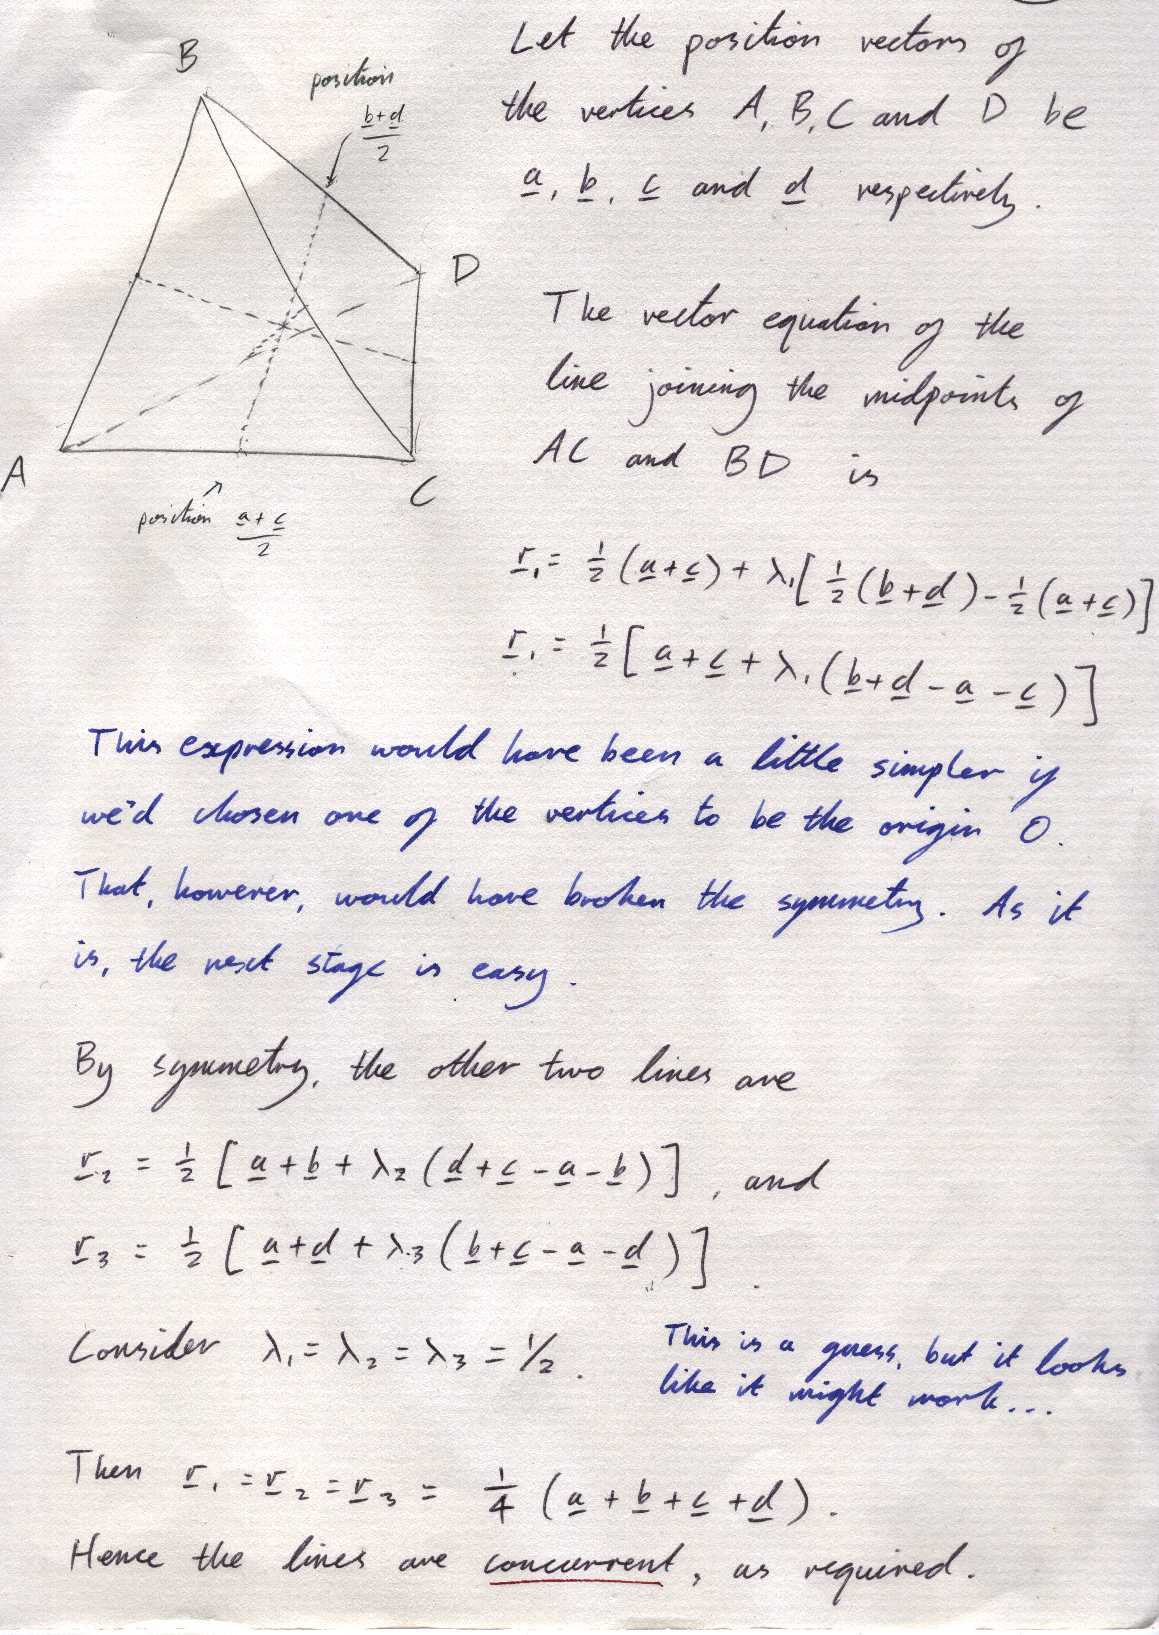 B
position
b+d
2
D
A
C
position a+c
2
Let the position vectors of
the vertices A, B, C and D be
a, b, c and d respectively.
The vector equation of the
line joining the midpoints of
AC and BD is
r₁ = ½(a+c) + λ₁[½(b+d) - ½(a+c)]
r₁ = ½[a+c+λ₁(b+d-a-c)]
This expression would have been a little simpler if
we'd chosen one of the vertices to be the origin O.
That, however, would have broken the symmetry. As it
is, the next stage is easy.
By symmetry, the other two lines are
r₂ = ½[a+b+λ₂(d+c-a-b)], and
r₃ = ½[a+d+λ₃(b+c-a-d)].
Consider λ₁=λ₂=λ₃=½.
This is a guess, but it looks
like it might work...
Then r₁=r₂=r₃ = ¼(a+b+c+d).
Hence the lines are concurrent, as required.